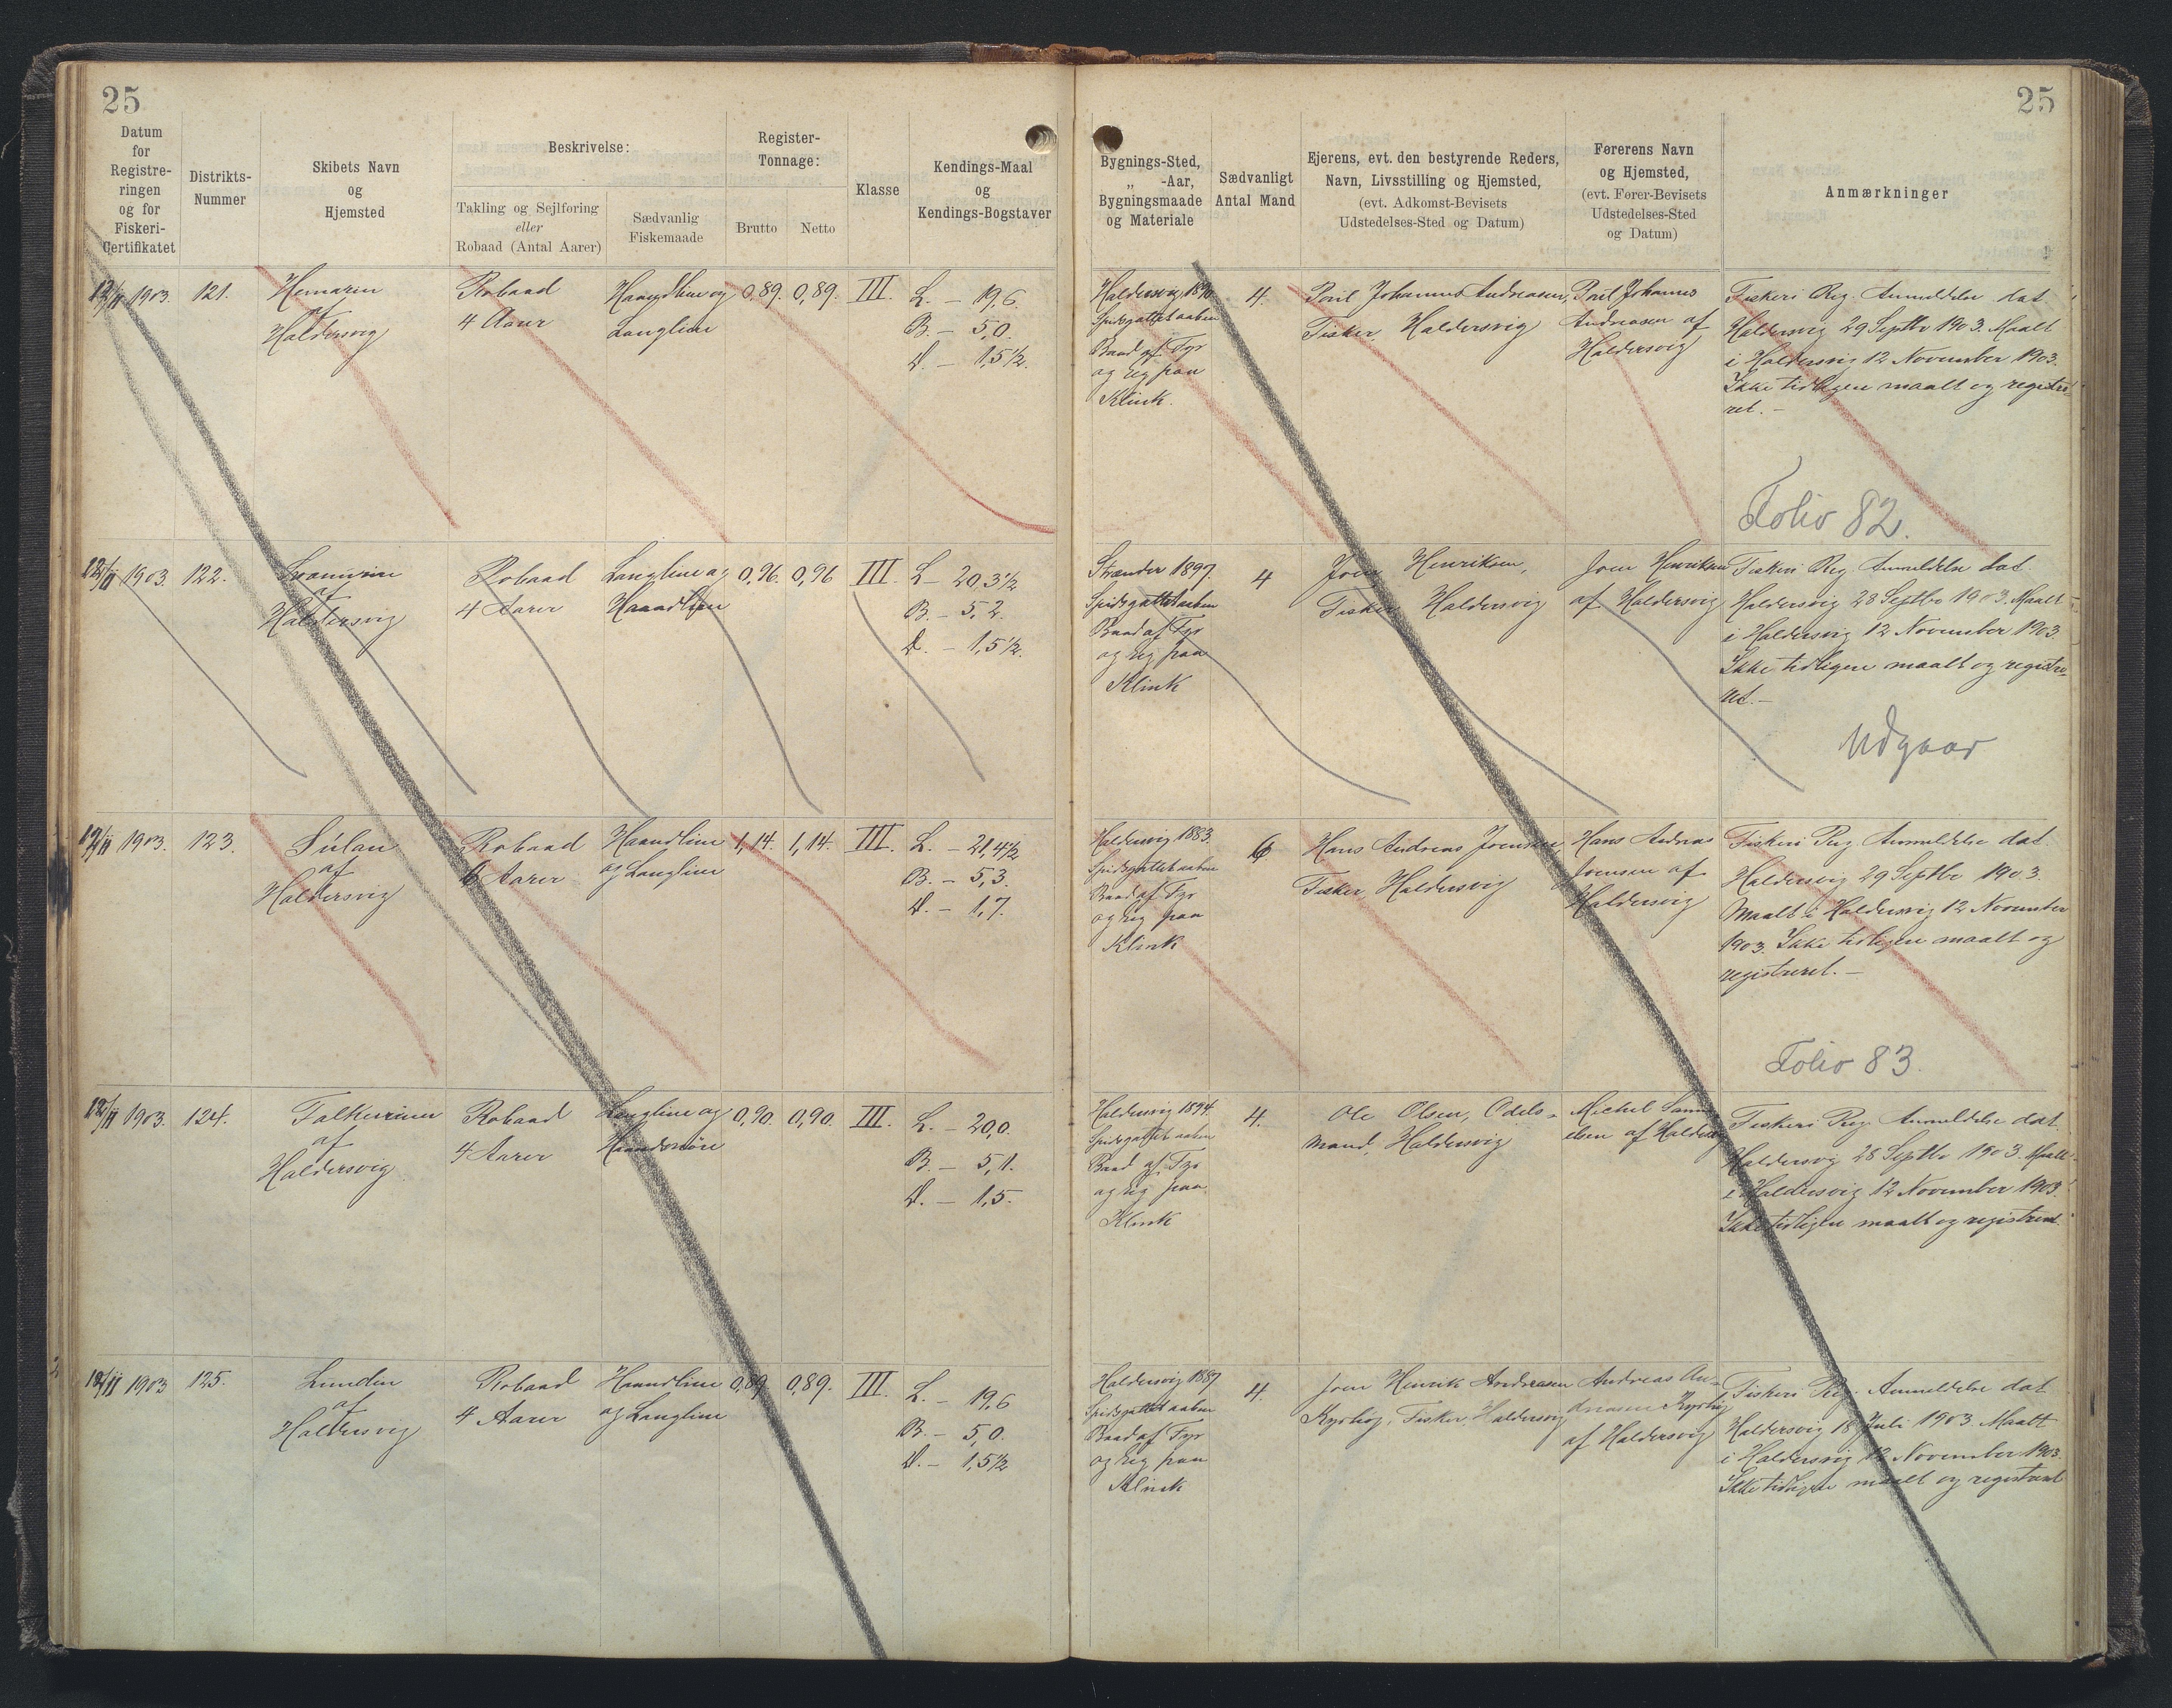 25
25
Datum
for
Registre-
ringen
og for
Fiskeri-
Certifikatet
Distrikts-
Nummer
Skibets Navn
og
Hjemsted
Beskrivelse:
Takling og Sejlføring
eller
Robaad (Antal Aarer)
Sædvanlig
Fiskemaade
Register-
Tonnage:
Brutto
Netto
Klasse
Kendings-Maal
og
Kendings-Bogstaver
Bygnings-Sted,
„ -Aar,
Bygningsmaade
og Materiale
Sædvanligt
Antal Mand
Ejerens, evt. den bestyrende Reders,
Navn, Livsstilling og Hjemsted,
(evt. Adkomst-Bevisets
Udstedelses-Sted og Datum)
Førerens Navn
og Hjemsted,
(evt. Fører-Bevisets
Udstedelses-Sted
og Datum)
Anmærkninger
12/11 1903.
121.
af
Haldersvig
Robaad
4 Aarer
Haandline og
Langline
0,89.
0,89.
III.
L. – 19,6.
B. – 5,0.
D. – 1,5½.
Haldersvig 1890
Spidsgattet aaben
Baad af Fyr
og Eg paa
Klink.
4.
Poul Johannes Andreasen,
Fisker, Haldersvig
Poul Johannes
Andreasen af
Haldersvig
Fiskeri Reg. Anmeldelse dat.
Haldersvig 29 Septbr 1903. Maalt
i Haldersvig 12 November 1903.
Ikke tidligere maalt og registre-
ret. –
Folio 82.
12/11 1903.
122.
af
Haldersvig
Robaad
4 Aarer
Langline og
Haandline
0,96.
0,96
III.
L – 20,3½
B. – 5,2.
D. – 1,5½.
Strænder 1897.
Spidsgattet aaben
Baad af Fyr
og Eg paa
Klink
4
Joen Henriksen,
Fisker, Haldersvig
Joen Henriksen
af Haldersvig
Fiskeri Reg. Anmeldelse dat.
Haldersvig 28 Septbr 1903. Maalt
i Haldersvig 12 November 1903.
Ikke tidligere maalt og registre-
ret. –
Udgaar
12/11 1903.
123.
Súlan
af
Haldersvig
Robaad
6 Aarer
Haandline
og Langline
1,14.
1,14.
III.
L. – 21,4½
B. – 5,3.
D. – 1,7.
Haldersvig 1883.
Spidsgattet aaben
Baad af Fyr
og Eg paa
Klink
6
Hans Andreas Joensen,
Fisker, Haldersvig
Hans Andreas
Joensen af
Haldersvig
Fiskeri Reg. Anmeldelse dat.
Haldersvig 29 Septbr 1903.
Maalt i Haldersvig 12 November
1903. Ikke tidligere maalt og
registreret. –
Folio 83.
12/11 1903.
124.
af
Haldersvig
Robaad
4 Aarer
Langline og
Haandsnøre
0,90.
0,90.
III.
L. – 20,0.
B. – 5,1.
D. – 1,5.
Haldersvig 1894.
Spidsgattet aaben
Baad af Fyr
og Eg paa
Klink
4.
Ole Olsen, Odels-
mand, Haldersvig
Michel Samu-
elsen af Haldersvig
Fiskeri Reg. Anmeldelse dat.
Haldersvig 28 Septbr 1903. Maalt
i Haldersvig 12 November 1903.
Ikke tidligere maalt og registreret.
12/11 1903
125.
Lunden
af
Haldersvig
Robaad
4 Aarer
Haandline
og Langline
0,89
0,89.
III.
L. – 19,6
B. – 5,0.
D. – 1,5½
Haldersvig 1887
Spidsgattet aaben
Baad af Fyr
og Eg paa
Klink
4.
Joen Henrik Andreasen
Kyrhøj, Fisker, Haldersvig
Andreas An-
dreasen Kyrhøj
af Haldersvig
Fiskeri Reg. Anmeldelse dat
Haldersvig 18 Juli 1903. Maalt
i Haldersvig 12 November 1903.
Ikke tidligere maalt og registreret